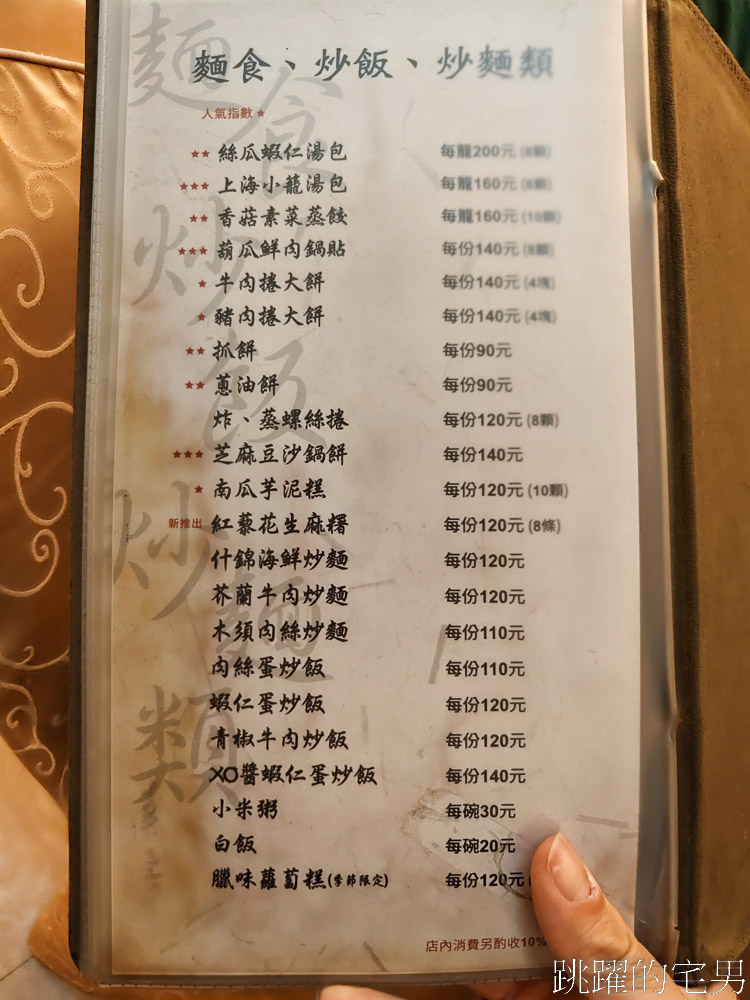 麵食、炒飯、炒麵類
人氣指數★
★★ 絲瓜蝦仁湯包 每籠200元 (8顆)
★★★ 上海小籠湯包 每籠160元 (8顆)
★★ 香菇素菜蒸餃 每籠160元 (10顆)
★★★ 葫瓜鮮肉鍋貼 每份140元 (8顆)
★ 牛肉捲大餅 每份140元 (4塊)
★ 豬肉捲大餅 每份140元 (4塊)
★★ 抓餅 每份90元
★★ 蔥油餅 每份90元
炸、蒸螺絲捲 每份120元 (8顆)
★★★ 芝麻豆沙鍋餅 每份140元
★ 南瓜芋泥糕 每份120元 (10顆)
新推出 紅藜花生麻糬 每份120元 (8條)
什錦海鮮炒麵 每份120元
芥蘭牛肉炒麵 每份120元
木須肉絲炒麵 每份110元
肉絲蛋炒飯 每份110元
蝦仁蛋炒飯 每份120元
青椒牛肉炒飯 每份120元
XO醬蝦仁蛋炒飯 每份140元
小米粥 每碗30元
白飯 每碗20元
臘味蘿蔔糕(季節限定) 每份120元 (
店內消費另酌收10%
麵食炒飯炒麵類
跳躍的宅男